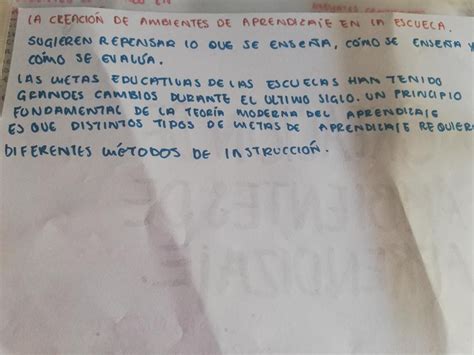 LA CREACIÓN DE AMBIENTES DE APRENDIZAJE EN LA ESCUELA.
SUGIEREN REPENSAR LO QUE SE ENSEÑA, CÓMO SE ENSEÑA Y
CÓMO SE EVALÚA.
LAS METAS EDUCATIVAS DE LAS ESCUELAS HAN TENIDO
GRANDES CAMBIOS DURANTE EL ULTIMO SIGLO. UN PRINCIPIO
FUNDAMENTAL DE LA TEORÍA MODERNA DEL APRENDIZAJE
ES QUE DISTINTOS TIPOS DE METAS DE APRENDIZAJE REQUIER
DIFERENTES MÉTODOS DE INSTRUCCIÓN.
AMBIENTES DE
APRENDIZAJE